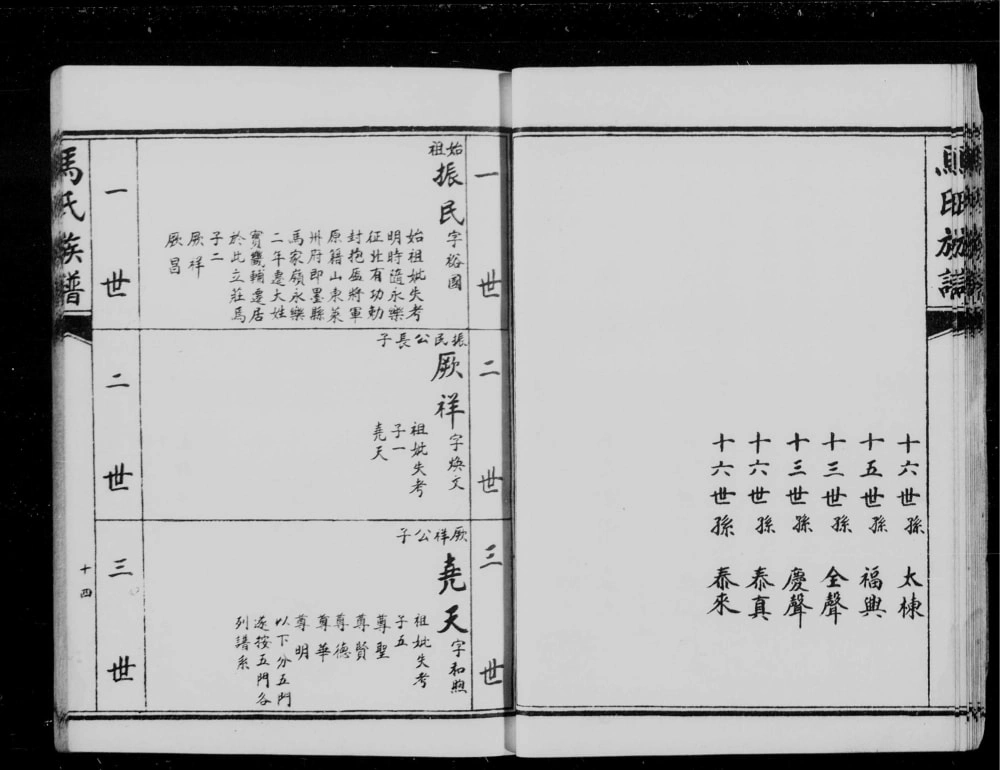 十六世孫 太棟
十五世孫 福興
十三世孫 全聲
十三世孫 慶聲
十六世孫 泰真
十六世孫 泰來
一世
始祖
振民字裕國
始祖妣失考
明時隨永樂
征北有功勅
封抱盔將軍
原籍山東萊
州府即墨縣
馬家嶺永樂
二年遷大姓
實畿輔遷居
於此立莊馬
子二
厥祥
厥昌
一世
二世
振民公長子
厥祥字煥文
祖妣失考
子一
堯天
二世
三世
厥祥公子
堯天字和煦
祖妣失考
子五
尊聖
尊賢
尊德
尊華
尊明
以下分五門
逐按五門各
列譜系
三世
馬氏族譜
十四